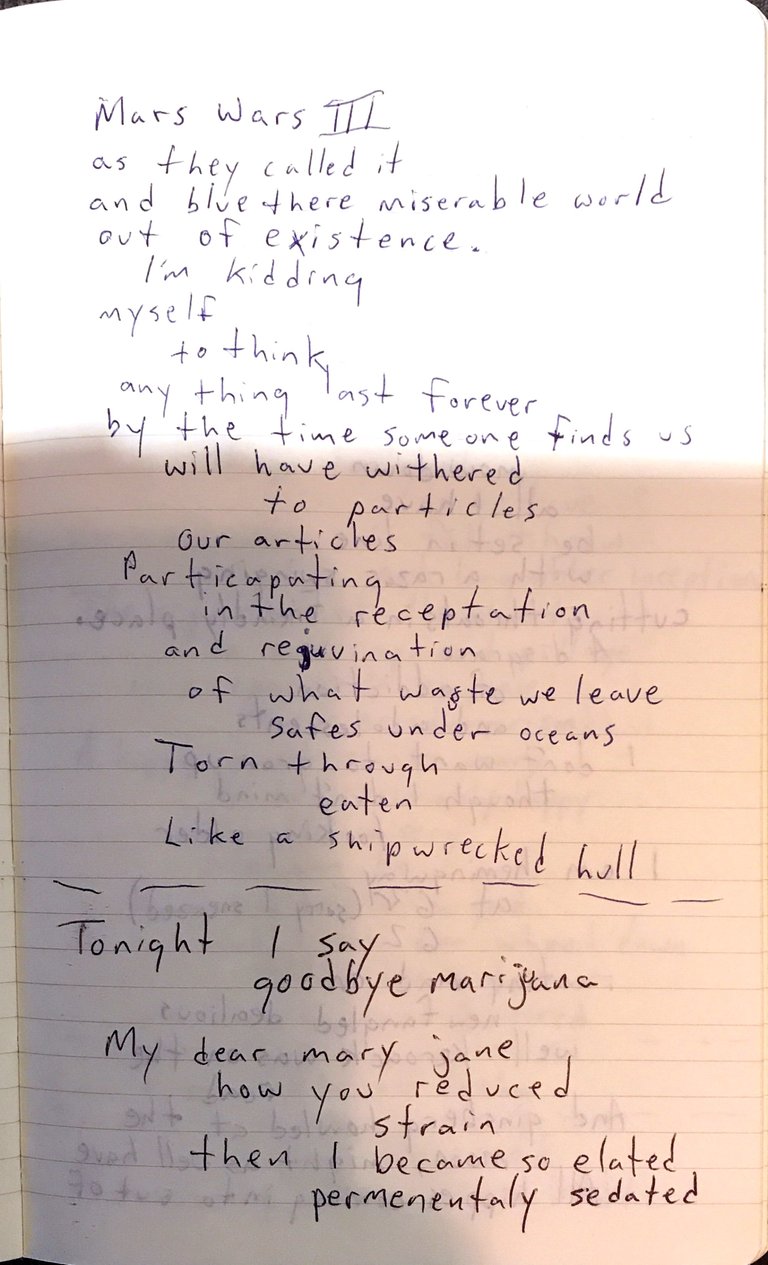 Mars Wars III
as they called it
and blue there miserable world
out of existence.
I'm kidding
myself
to think
any thing last forever
by the time someone finds us
will have withered
to particles
our articles
Particaputing
in the receptation
and rejuvination
of what waste we leave
Safes under oceans
Torn through
eaten
Like a shipwrecked hull
Tonight I say
goodbye marijuana
My dear mary jane
how you reduced
strain
then I became so elated
permenentaly sedated